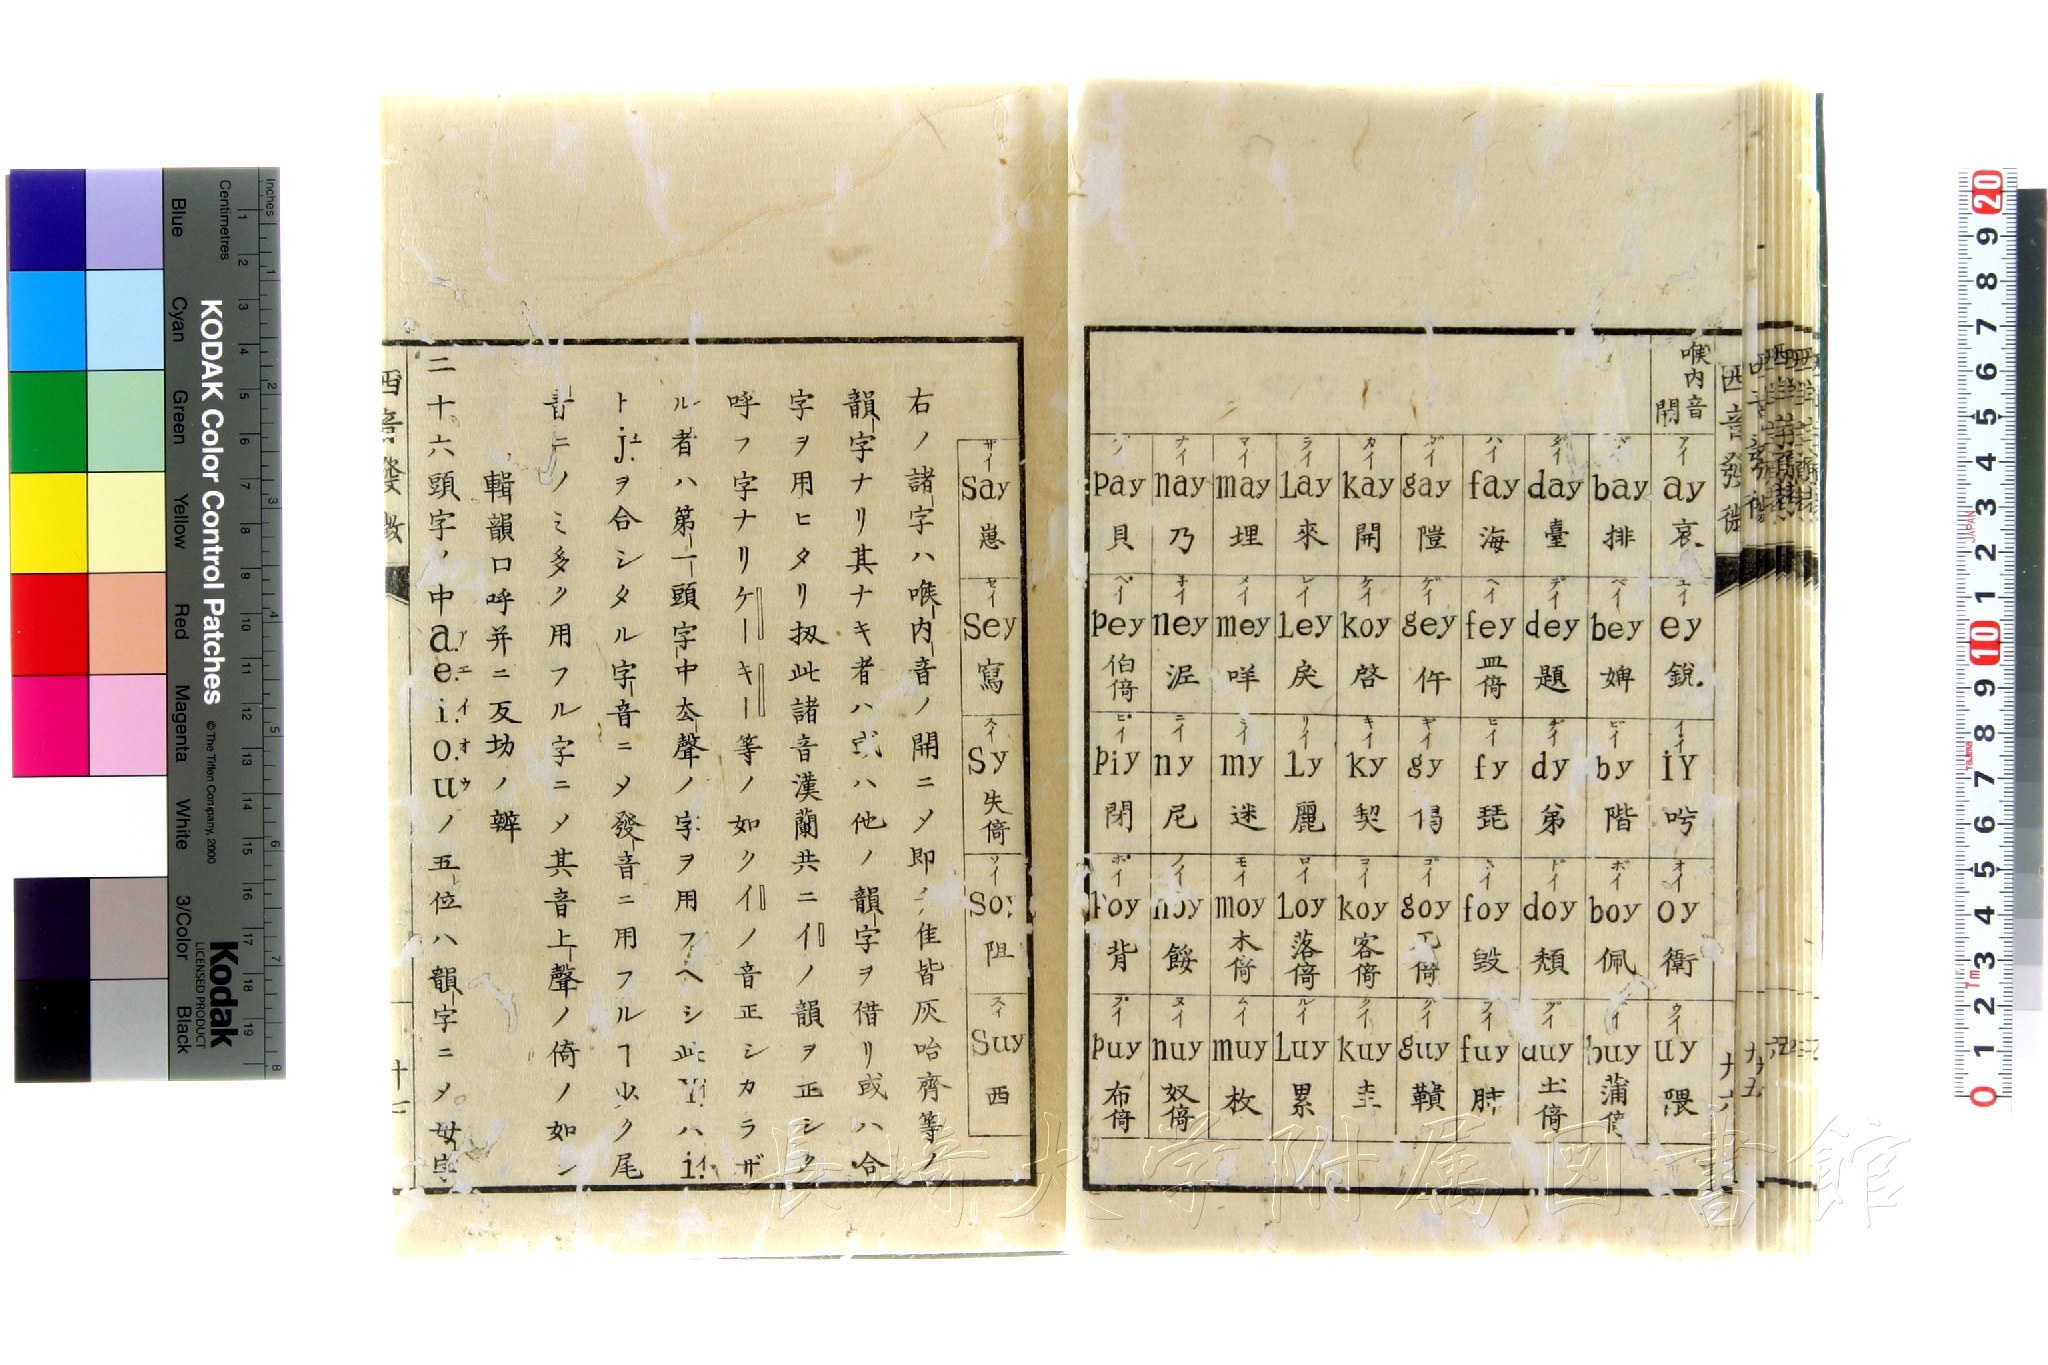 喉内音 開
アイ ay 哀
エイ ey 鋭
イイ iY 吟
オイ oy 衛
ウイ uy 隈
bay 排
ベイ bey 婢
ビイ by 階
ボイ boy 佩
buy 蒲
day 臺
デイ dey 題
dy 弟
ドイ doy 頽
duy 土倚
ハイ fay 海
ヘイ fey 皿倚
ヒイ fy 琵
foy 毀
フイ fuy 肘
gay 隑
ゲイ gey 仵
ギイ gy 偈
ゴイ goy 兀倚
グイ guy 鞼
カイ kay 開
ケイ koy 啓
キイ ky 契
コイ koy 客倚
クイ kuy 圭
ライ Lay 來
レイ Ley 戻
リイ Ly 麗
ロイ Loy 落倚
ルイ Luy 累
マイ may 埋
メイ mey 咩
ミイ my 迷
モイ moy 木倚
ムイ muy 枚
ナイ nay 乃
ネイ ney 泥
ニイ ny 尼
ノイ noy 餒
ヌイ nuy 奴倚
pay 貝
ペイ pey 伯倚
ピイ piy 閉
ポイ poy 背
プイ puy 布倚
サイ Say 崽
セイ Sey 寫
スイ Sy 失倚
ソイ Soy 阻
スイ Suy 西
右ノ諸字ハ喉内音ノ開ニメ即チ佳皆灰咍齊等ノ
韻字ナリ其ナキ者ハ或ハ他ノ韻字ヲ借リ或ハ合
字ヲ用ヒタリ扨此諸音漢蘭共ニイノ韻ヲ正シク
呼フ字ナリケーキー等ノ如クイノ音正シカラザ
ル者ハ第一頭字中去聲ノ字ヲ用フヘシ此Yハi
トjヲ合シタル字音ニメ發音ニ用フルヿ少ク尾
音ニノミ多ク用フル字ニメ其音上聲ノ倚ノ如シ
輯韻口呼并ニ反切ノ辨
二十六頭字ノ中a.e.i.o.uノ五位ハ韻字ニメ母字
西音發微
十六
十七
KODAK Color Control Patches
© The Tiffen Company, 2000
Kodak
LICENSED PRODUCT
Inches
Centimetres
Blue
Cyan
Green
Yellow
Red
Magenta
White
3/Color
Black
長崎大学附属図書館